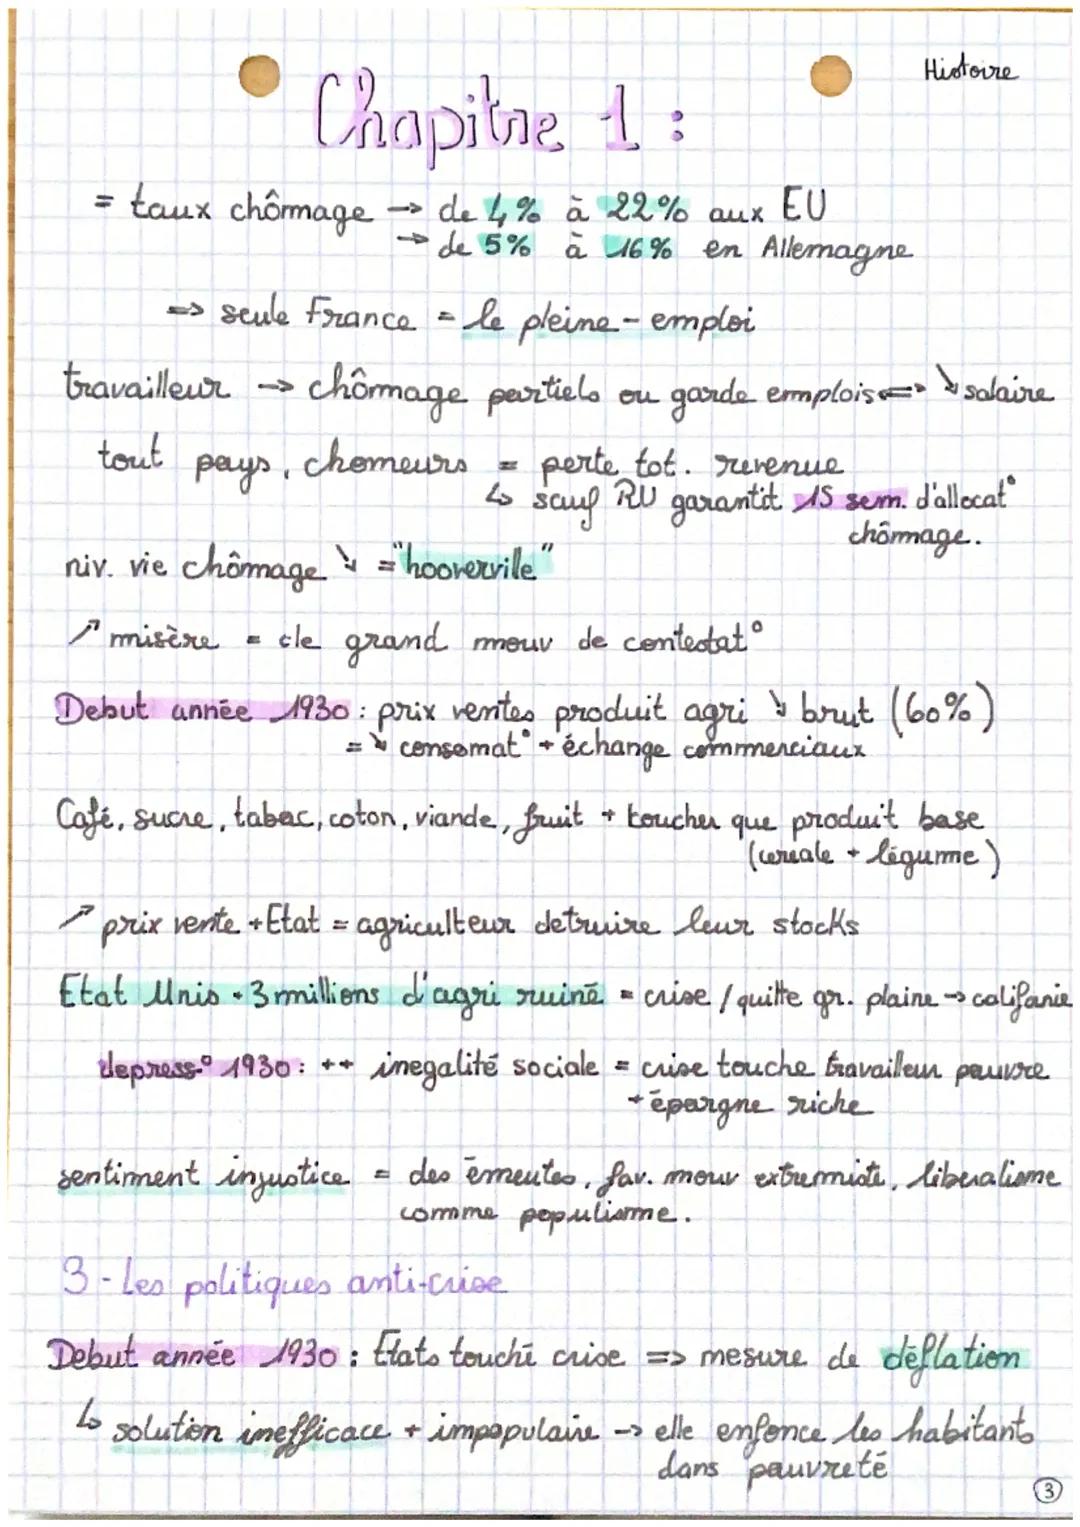 Histoire
Chapitre 1 :
= taux chômage → de 4% à 22% aux EU
→ de 5% à 16% en Allemagne
=> seule France = le pleine-emploi
travailleur → chômage partiels ou garde emplois <=> ↘ salaire
tout pays, chomeurs = perte tot. revenue
↳ sauf RU garantit 15 sem. d'allocat°
chômage.
niv. vie chômage ↘ = "hooverville"
↗ misère = cle grand mouv de contestat°
Debut année 1930 : prix ventes produit agri ↘ brut (60%)
= ↘ consomat° + échange commerciaux
Café, sucre, tabac, coton, viande, fruit + toucher que produit base
(cereale + légume)
↗ prix vente + Etat = agriculteur detruire leur stocks
Etat Unis - 3 millions d'agri ruiné = crise / quitte gr. plaine → califonie
depress° 1930 : ++ inegalité sociale = crise touche travailleur pauvre
+ épargne riche
sentiment injustice = des émeutes, fav. mouv extremiste, liberalisme
comme populisme.
3 - Les politiques anti-crise
Debut année 1930 : Etats touché crise => mesure de déflation
↳ solution inefficace + impopulaire → elle enfonce les habitants
dans pauvreté
3